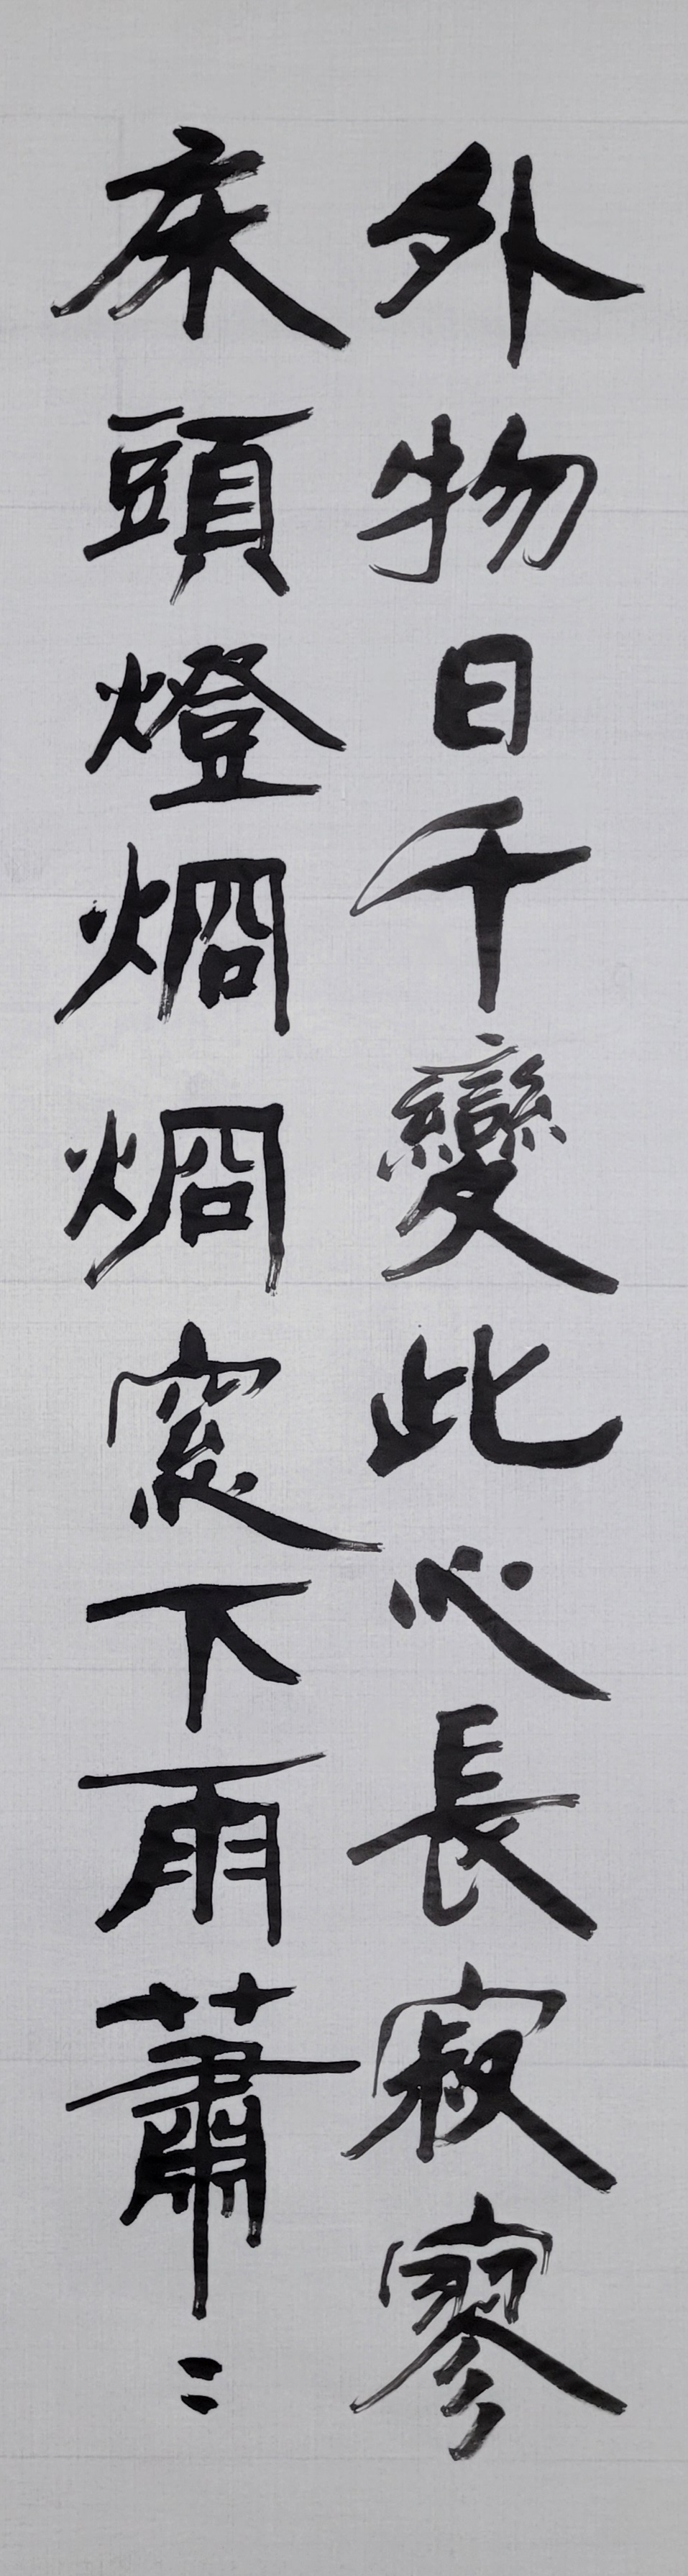 外物日千變此心長寂寥
床頭燈烱烱窓下雨蕭〻